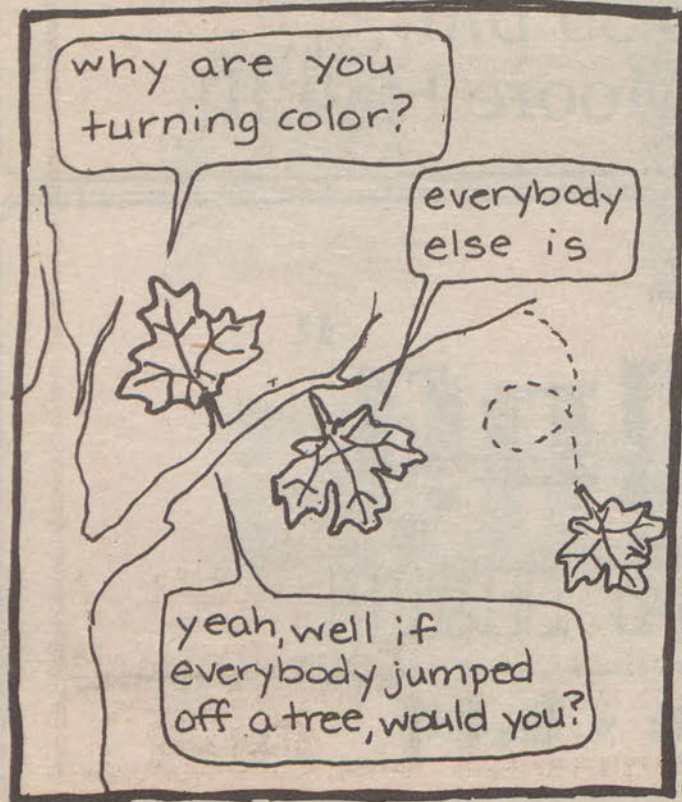 why are you
turning color?
everybody
else is
yeah, well if
everybody jumped
off a tree, would you?